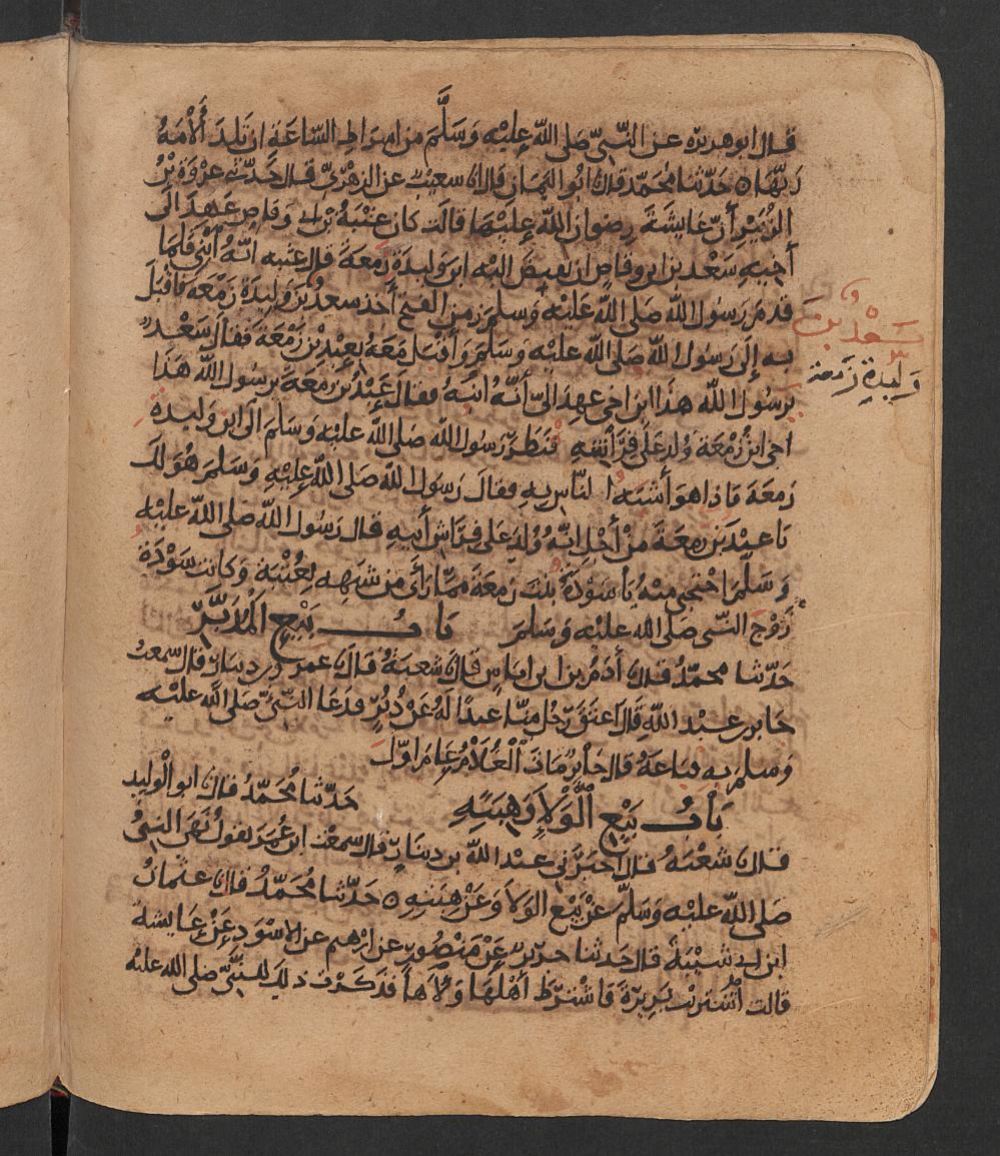 قال ابو هريرة عن النَّبيِّ صَلى اللهُ عليْهِ وَسَلَّمَ من اشراطِ السّاعَةِ ان تلِدَ الأَمَةُ
رَبَّهَا ه حَدّثنا محَمّد قال نا ابُو اليَمَانِ قال انا شعيْبٌ عن الزهْريِّ قال حَدّثني عرْوَةُ بْنُ
الزُّبَيْرِ أَنّ عَايشَةَ رضوان اللهُ عليْهَا قالت كان عتْبَةُ بْن ابي وَقاصٍ عَهِدَ الَى
أخِيهِ سَعْد بن ابي وقاصٍ ان يقبضَ اليْه ابن وَليدَةِ زَمعَةَ قال عتبه انّهُ ابْني فلمَا
قدمَ رَسُول الله صَلى اللهُ عَليْهِ وَسلم زمن الفتح أخذ سعدٌ بنَ وَليدَةِ زَمْعَة فاقْبَلَ
به إلَى رَسُول اللهِ صَلى اللهُ عليْه وَسَلمَ وَأقبَل مَعَهُ بعبْدِ بْن زَمْعَةَ فقال سَعْدٌ
يرسُول الله هذا ابن اخى عهِدَ الىّ أنّهُ ابنُهُ فقال عَبْدُ بْن زمعَةَ يرسُول الله هَذَا
اخى ابن زَمْعَةَ وُلدَ عَلَى فِرَاشِهِ فنَظر رَسُول الله صَلى اللهُ عليْهِ وَسَلمَ الَى ابن وَليده
زمعَة فاذا هوَ أَشبَهُ النّاسِ بِهِ فقالَ رَسُول اللهِ صَلى اللهُ عليْهِ وَسَلمَ هُوَ لكَ
يا عبْدَ بْن زمعَةَ منْ أَجْلِ انّهُ وُلِدَ عَلى فِرَاشِ أَبِيهِ قال رَسُول اللهِ صَلى اللهُ عليْه
وَسَلَّمَ احْتجبى منْهُ يا سَوْدَةُ بنْتَ زَمعَة ممّا رَأَى من شبَهِهِ بعُتْبَةَ وَكانت سَوْدَة
زَوْجَ النَّبى صَلى الله عليْه وَسَلمَ بَابُ بَيْعِ المُدَبَّرِ
حَدّثنا محَمّدٌ قال نا أدَمُ بن ابى اياس قال نا شعبَةُ قال نا عمرو بن دينارٍ قال سمعتُ
جَابر بن عبْد اللهِ قالَ اعتَقَ رَجُلٌ منّا عبدًا لَهُ عَنْ دُبُرٍ فدَعَا النَّبىّ صَلى اللهُ عليْه
وَسَلم به فباعَهُ قال جَابرٌ مَاتَ الْغُلامُ عَامَ اوّلَ
بَابُ بَيْعِ الْوَلاءِ وَهِبَتِهِ حَدّثنا محَمّدٌ قال نا ابو الْوَليد
قال نا شعْبَةُ قال اخبَرَنِي عبْد اللهِ بن دينارٍ قال سمعْتُ ابن عُمَرَ يقولُ نَهَى النَّبىُّ
صَلى اللهُ عليْه وَسَلَّم عَنْ بَيْعِ الوَلاءِ وَعَنْ هِبَتِهِ ه حَدّثنا محَمّدٌ قال نا عثمانُ
ابن ابى شيْبَةَ قال حَدثنا جريرٌ عَنْ مَنْصُورٍ عن ابرٰهيم عن الاسْوَدِ عَنْ عَايشة
قالت اشْتريْت بَرِيرَةَ فاشْترَطَ أَهْلهَا وَلاءَهَا فذكَرْت ذلِكَ للنَّبىِّ صلى الله عليه
سَعْد بن
وَليدة زَمعة